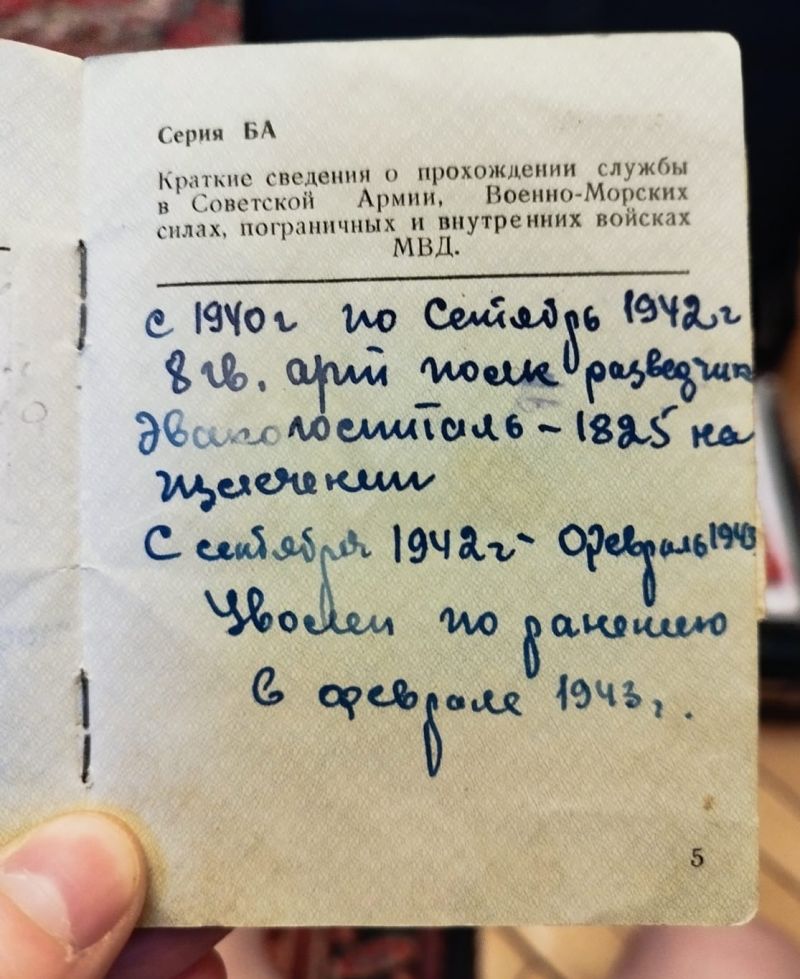 Серия БА
Краткие сведения о прохождении службы
в Советской Армии, Военно-Морских
силах, пограничных и внутренних войсках
МВД.
с 1940 г по Сентябрь 1942 г
8 гв. арт полк разведчик
Эвакогоспиталь - 1825 на
излечении
С сентября 1942 г - Февраль 1943
Уволен по ранению
в феврале 1943 г.
5